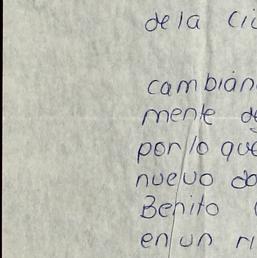 de la
cambian
mente de
por lo que
nuevo do
Benito
en un